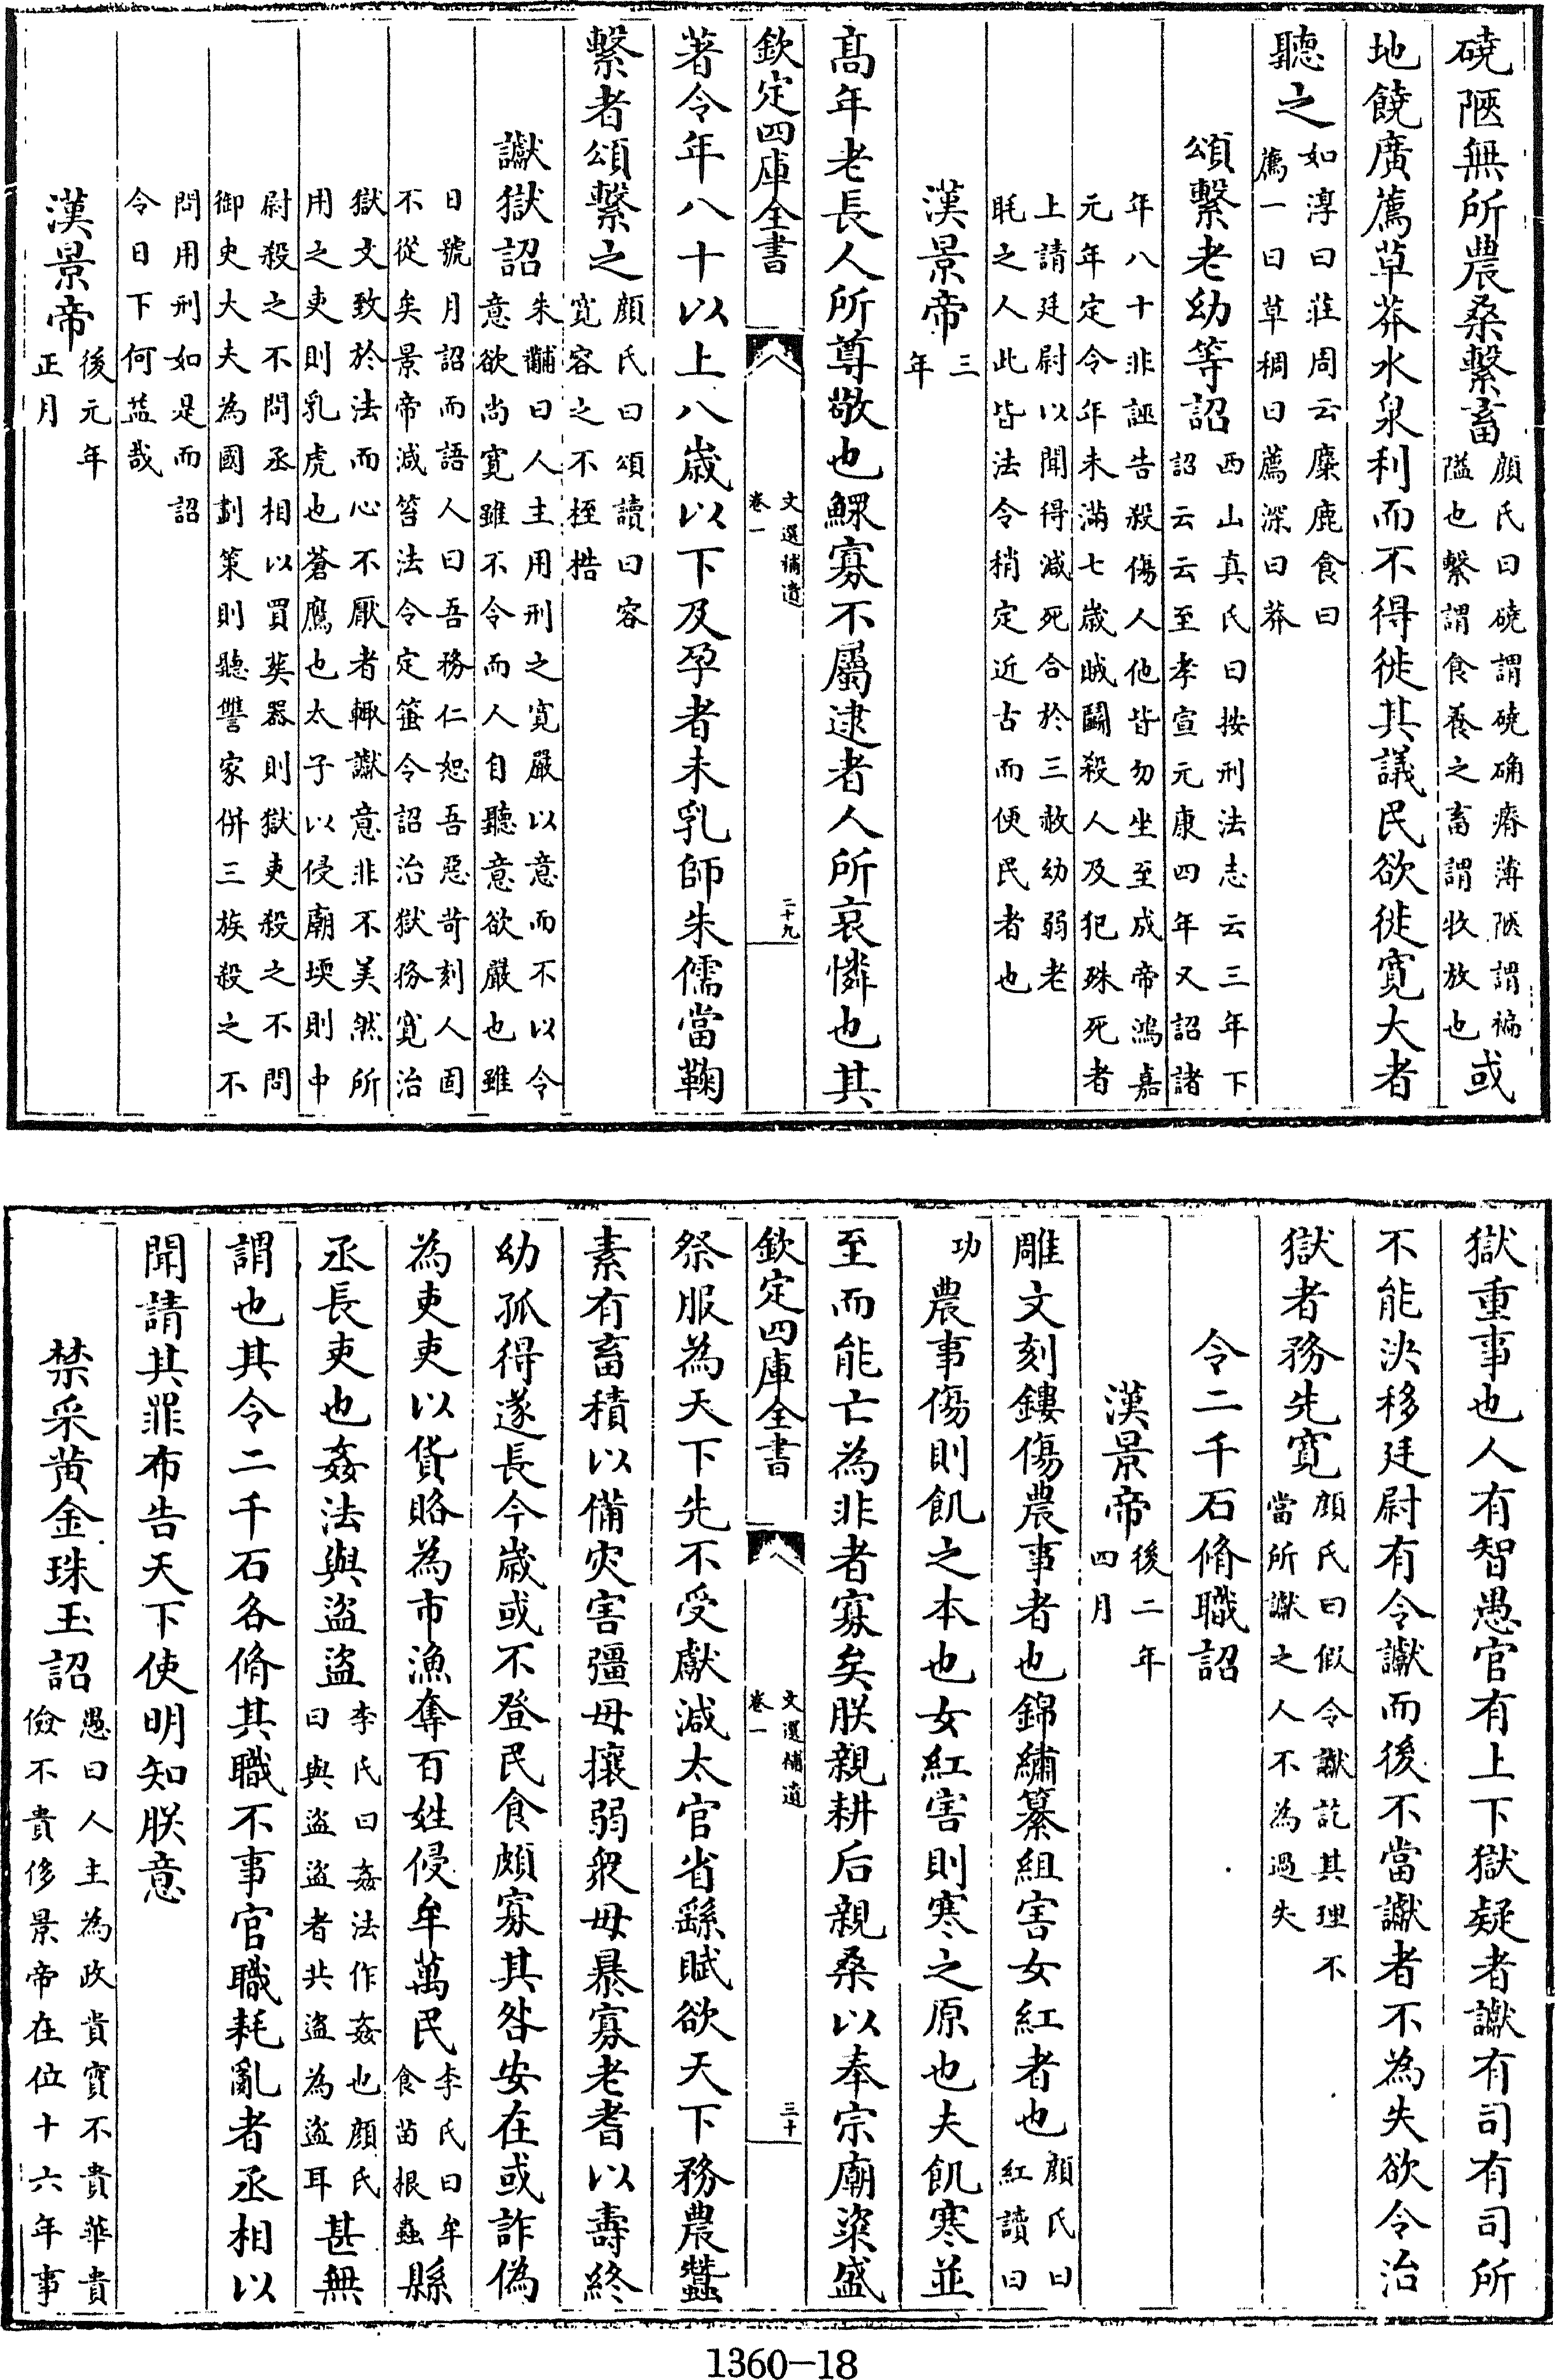 磽陿無所農桑繫畜顔氏曰磽謂磽确瘠薄陿謂褊隘也繫謂食養之畜謂牧放也或
地饒廣薦草莽水泉利而不得徙其議民欲徙寛大者
聽之如淳曰莊周云麋鹿食曰薦一曰草稠曰薦深曰莽
頌繫老幼等詔西山真氏曰按刑法志云三年下詔云云至孝宣元康四年又詔諸
年八十非誣告殺傷人他皆勿坐至成帝鴻嘉元年定令年未滿七歲賊鬭殺人及犯殊死者
上請廷尉以聞得減死合於三赦幼弱老眊之人此皆法令稍定近古而便民者也
漢景帝三年
髙年老長人所尊敬也鰥寡不屬逮者人所哀憐也其
欽定四庫全書
文選補遺
卷一
二十九
著令年八十以上八歲以下及孕者未乳師朱儒當鞠
繫者頌繫之顔氏曰頌讀曰容寛容之不桎梏
讞獄詔朱黼曰人主用刑之寛嚴以意而不以令意欲尚寛雖不令而人自聽意欲嚴也雖
日號月詔而語人曰吾務仁恕吾惡苛刻人固不從矣景帝減笞法令定箠令詔治獄務寛治
獄文致於法而心不厭者輙讞意非不美然所用之吏則乳虎也蒼鷹也太子以侵廟堧則中
尉殺之不問丞相以買葬器則獄吏殺之不問御史大夫為國劃策則聽讐家併三族殺之不
問用刑如是而詔令日下何益哉
漢景帝後元年正月
獄重事也人有智愚官有上下獄疑者讞有司有司所
不能決移廷尉有令讞而後不當讞者不為失欲令治
獄者務先寛顔氏曰假令讞訖其理不當所讞之人不為過失
令二千石脩職詔
漢景帝後二年四月
雕文刻鏤傷農事者也錦繡纂組害女紅者也顔氏曰紅讀曰
功農事傷則飢之本也女紅害則寒之原也夫飢寒並
至而能亡為非者寡矣朕親耕后親桑以奉宗廟粢盛
欽定四庫全書
文選補遺
卷一
三十
祭服為天下先不受獻減太官省繇賦欲天下務農蠶
素有畜積以備灾害彊毋攘弱衆毋暴寡老耆以壽終
幼孤得遂長今歲或不登民食頗寡其咎安在或詐偽
為吏吏以貨賂為市漁奪百姓侵牟萬民李氏曰牟食苗根蟲縣
丞長吏也姦法與盜盜李氏曰姦法作姦也顔氏曰與盜盜者共盜為盜耳甚無
謂也其令二千石各脩其職不事官職耗亂者丞相以
聞請其罪布告天下使明知朕意
禁采黄金珠玉詔愚曰人主為政貴實不貴華貴儉不貴侈景帝在位十六年事
1360-18